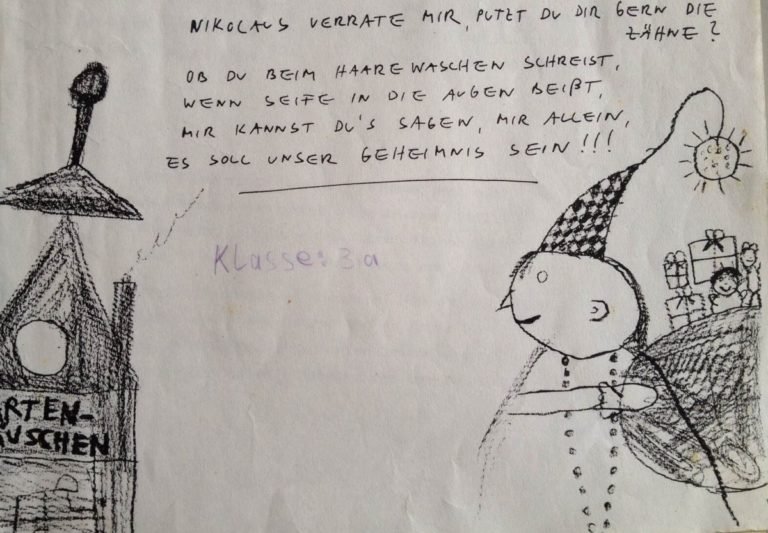 NIKOLAUS VERRATE MIR, PUTZT DU DIR GERN DIE
ZÄHNE?
OB DU BEIM HAAREWASCHEN SCHREIST,
WENN SEIFE IN DIE AUGEN BEIßT,
MIR KANNST DU'S SAGEN, MIR ALLEIN,
ES SOLL UNSER GEHEIMNIS SEIN!!!
Klasse: 3.a
ARTEN-
ÄUSCHEN